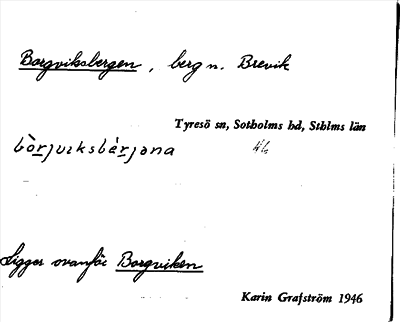 Borgviksbergen, berg n. Brevik
Tyresö sn, Sotholms hd, Sthlms län
bòrjviksbèrjana
Ligger ovanför Borgviken
Karin Grafström 1946